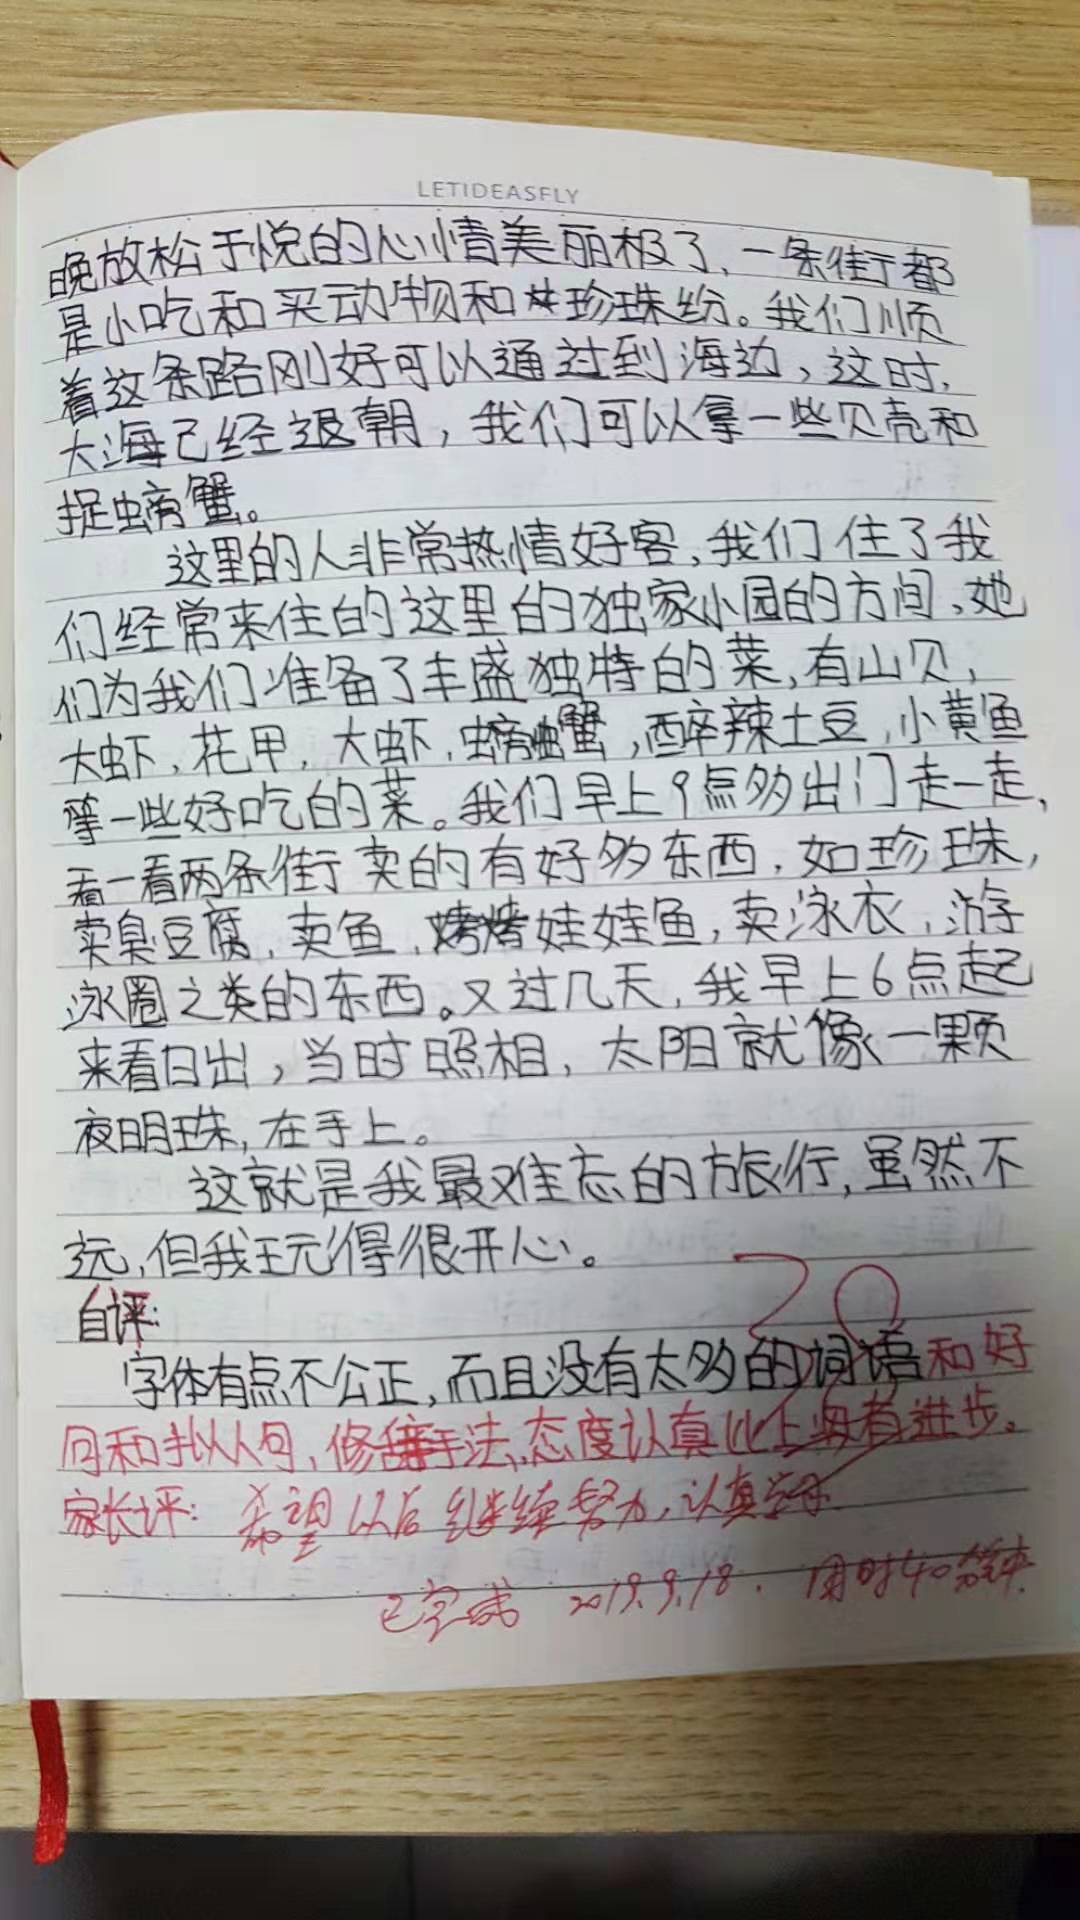 LETIDEASFLY
晚放松于悦的心情美丽极了，一条街都
是小吃和买动物和珍珠纷。我们顺
着这条路刚好可以通过到海边，这时，
大海已经退朝，我们可以拿一些贝壳和
捉螃蟹。
这里的人非常热情好客，我们住了我
们经常来住的这里的独家小园的方间，她
们为我们准备了丰盛独特的菜，有山贝，
大虾，花甲，大虾，螃蟹，醉辣土豆，小黄鱼
等一些好吃的菜。我们早上9点多出门走一走，
看一看两条街卖的有好多东西，如珍珠，
卖臭豆腐，卖鱼，烤娃娃鱼，卖泳衣，游
泳圈之类的东西。又过几天，我早上6点起
来看日出，当时照相，太阳就像一颗
夜明珠，在手上。
这就是我最难忘的旅行，虽然不
远，但我玩得很开心。
自评：
字体有点不公正，而且没有太多的词语和好
句和拟人句，修辞手法，态度认真比上有进步。
家长评：希望以后继续努力，认真
已完成 2019.9.18. 用时40分钟
20